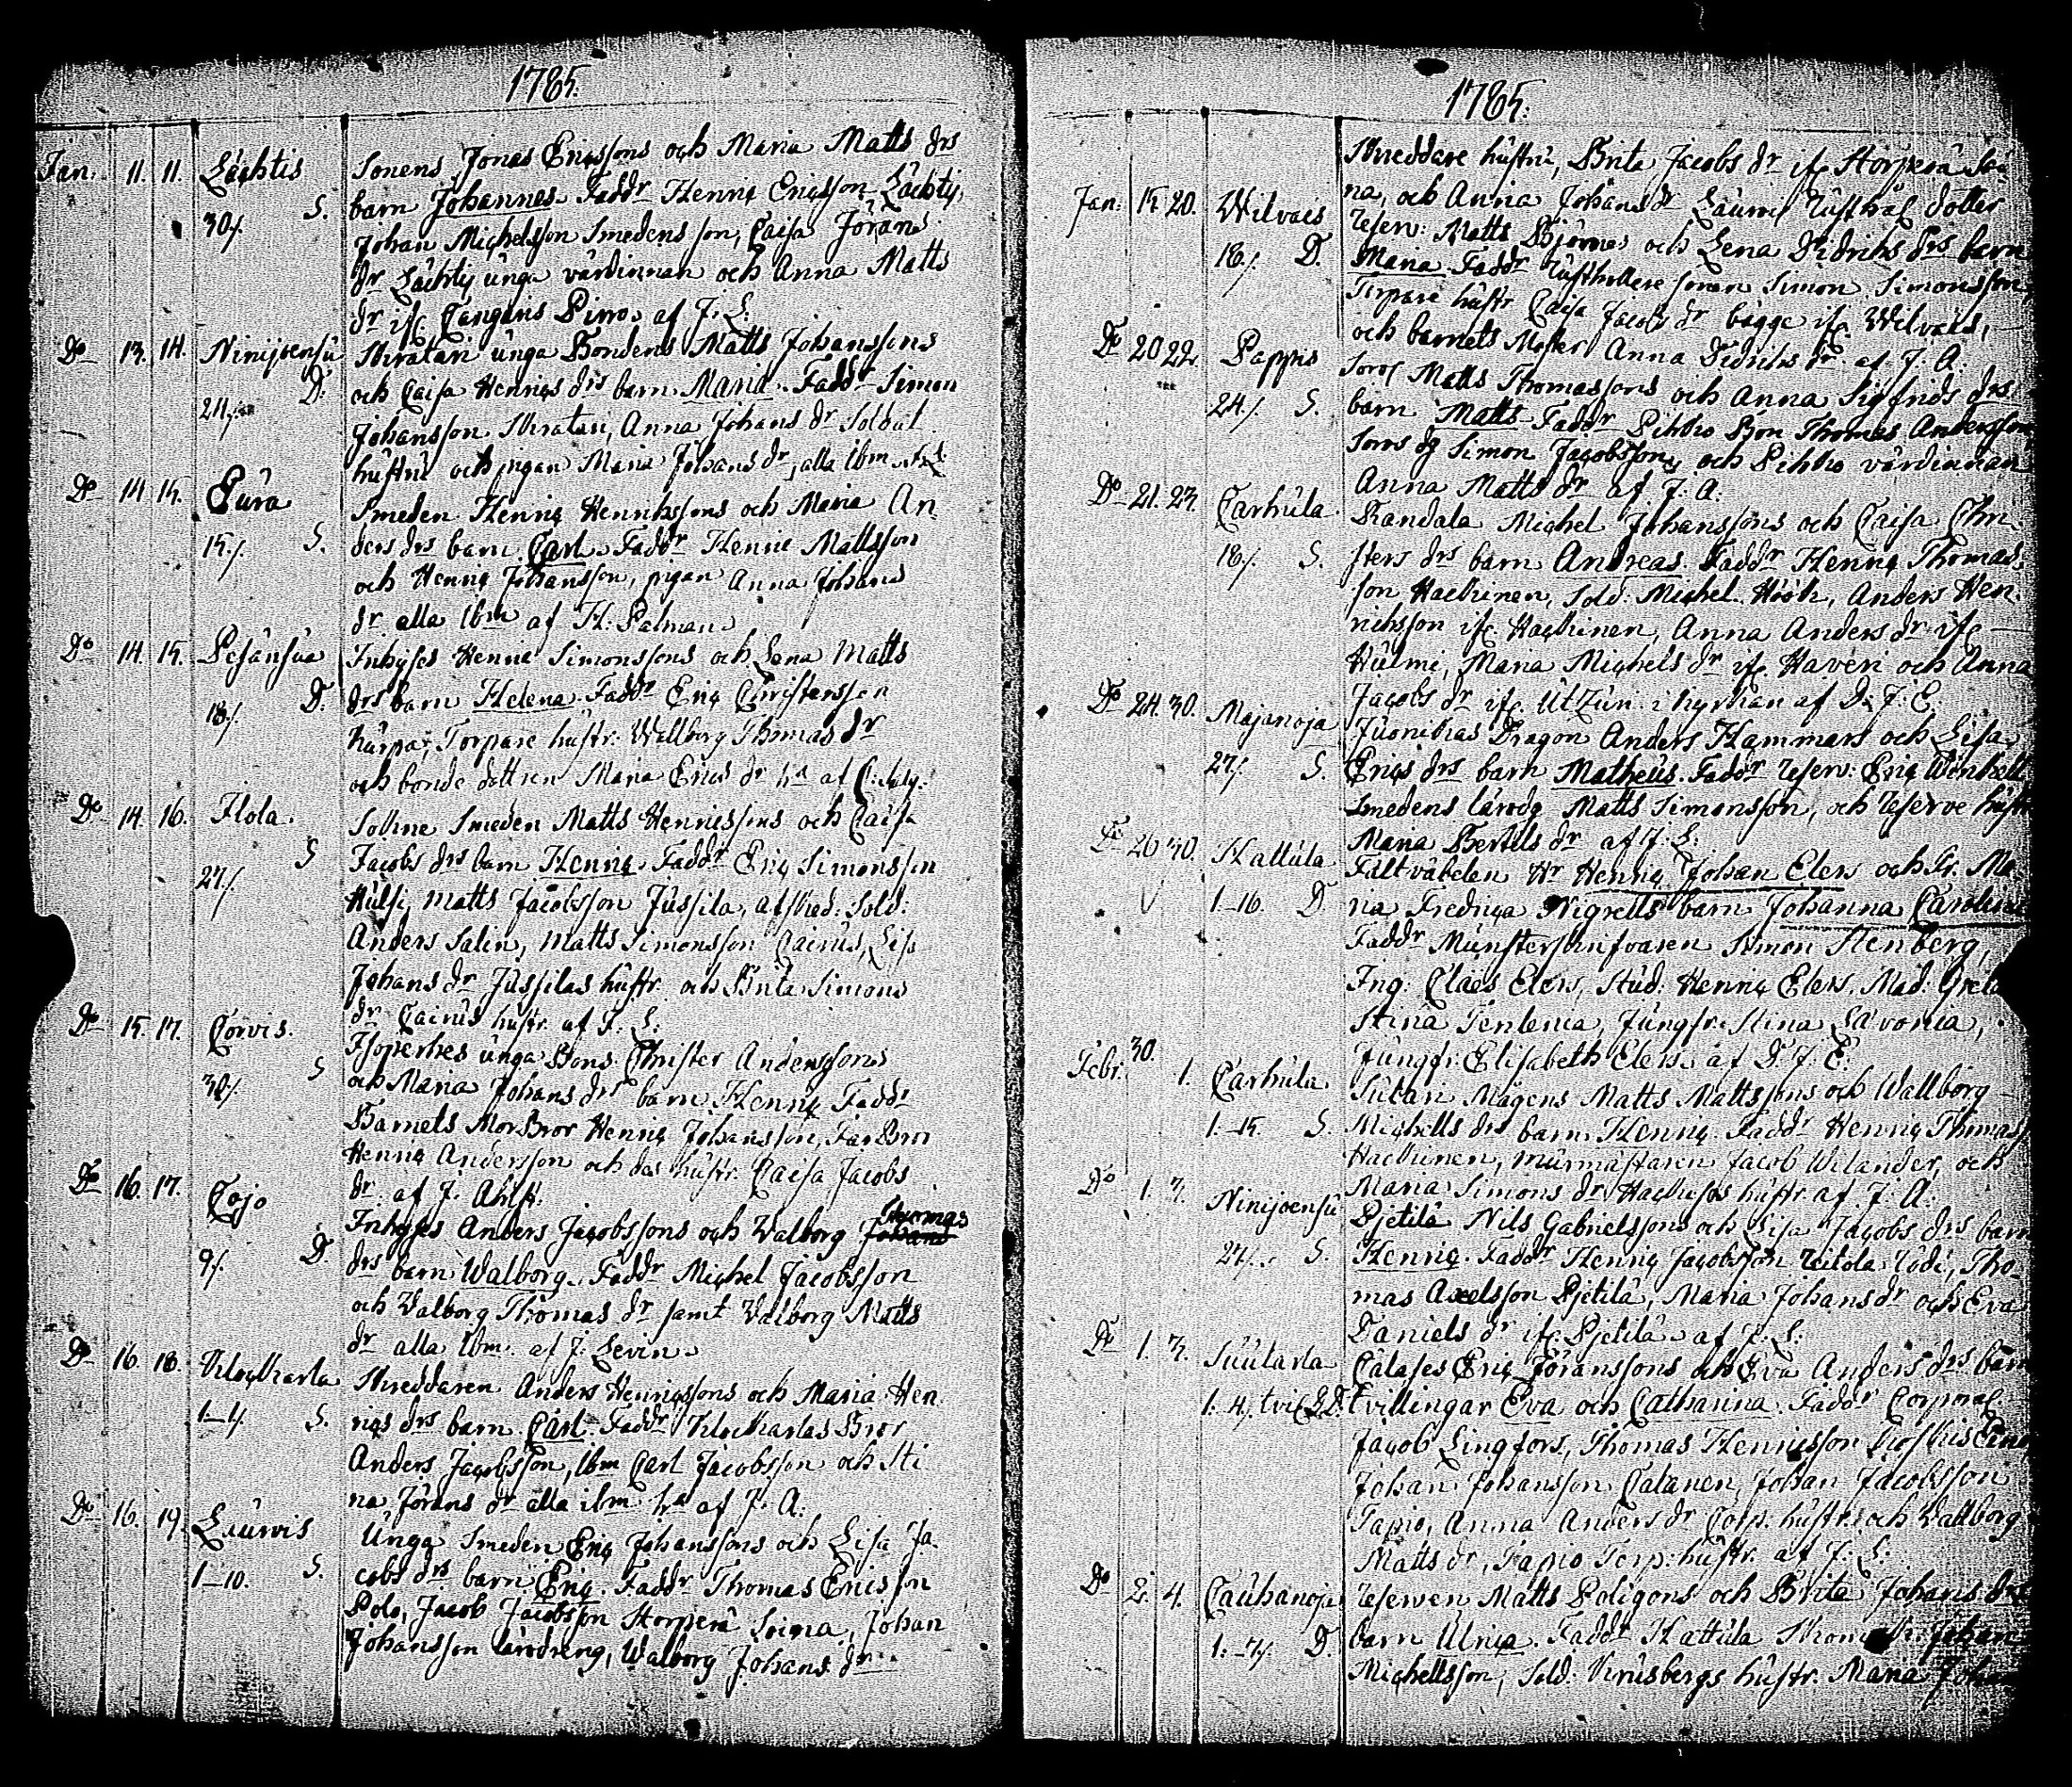 1785.
Jan. 11. 11. Lächtis Sonens Jonas Ericssons och Maria Matts drs
30/. S. barn Johannes. Faddr Henric Ericsson Lächtis,
Johan Michelsson Smedens son, Caisa Jörans
dr Lächtis unga värdinnan och Anna Matts
dr if. Piro. af J. L.
Do 13. 14. Ninijoensu Skratari unga Bondens Matts Johanssons
D. och Caisa Henrics drs barn Maria. Faddr Simon
Johansson Skratari, Anna Johans dr Soldat
hustru och pigan Maria Johans dr, alla ibm
Do 14. 15. Eura Smeden Henric Henrikssons och Maria An
15/. S. ders drs barn Carl. Faddr Henric Mattsson
och Henric Johansson, pigan Anna Johans
dr alla ibm af H. Palman.
Do 14. 15. Pesänsuu Inhyses Henric Simonssons och Lena Matts
18/. D. drs barn Helena. Faddr Eric Christersson
Torpare hustr. Wallborg Thomas dr
och bonde dottren Maria Erics dr
Do 14. 16. Ilola. Smeden Matts Henricssons och Caisa
27/. S Jacobs drs barn Henric. Faddr Eric Simonsson
Hülsi, Matts Jacobsson Jussila, afsked: Sold:
Anders Salin, Matts Simonsson Cairus, Lisa
Johans dr Jussilas hustr. och Brita Simons
dr Cairus hustr. af J. L:
Do 15. 17. Corvis. unga Bons. Christer Anderssons
30/. S och Maria Johans drs barn Henric Faddr
Barnets MorBror Henric Johansson, FarBror
Henric Andersson och das hustr. Caisa Jacobs
dr. af J. Ahlst.
Do 16. 17. Cojo Inhyses Anders Jacobssons och Walborg Thomas
9/. D. drs barn Walborg. Faddr Michel Jacobsson
och Walborg Thomas dr samt Walborg Matts
dr alla ibm. af J. Levin.
Do 16. 18. Skreddaren Anders Henricssons och Maria Hen
S. rics drs barn Carl. Faddr Bror
Anders Jacobsson, ibm Carl Jacobsson och Sti
na Jörans dr alla ibm af J. A.
Do 16. 19. Lauvois Unga Smeden Eric Johanssons och Lisa Ja
1-10. S. cobs drs barn Eric. Faddr Thomas Ericsson
Polo, Jacob Jacobsson Storperä Soina, Johan
Johansson lärodreng, Walborg Johans dr
1785.
Skreddare hustru, Brita Jacobs dr if. Storperä Soi
na, och Anna Johans dr Lauvois Rusthål dotter
Jan. 15. 20. Wilvais Reserv: Matts Björnes och Lena Didrichs drs barn
18/. D. Maria. Faddr Rusthollere sonen Simon Simonsson,
Torpare hustr. Caisa Jacobs dr bägge if. Wilvais,
och barnets Moster Anna Didrichs dr. af J. A.
Do 20 22. Pappis Matts Thomassons och Anna Sigfrids drs
24/. S. barn Matts. Faddr Pihko Bon Thomas Andersson
Simon Jacobsson, och Pihko värdinnan
Anna Matts dr af J. A.
Do 21. 23. Carhula Randala Michel Johanssons och Caisa Chri
18/. S. sters drs barn Andreas. Faddr Henric Thomas
son Hackinen, Sold: Michel Höök, Anders Hen
riksson if. Hackinen, Anna Anders dr if.
Hulmi, Maria Michels dr if. Haveri och Anna
Jacobs dr if. i kyrkan af D. J. E.
Do 24. 30. Majanoja Juonikas Dragon Anders Hammars och Lisa
27/. S. Erics drs barn Matheus. Faddr Reserv: Eric
Smedens lärodg Matts Simonsson, och Reserve hust
Maria Bertils dr af J. L.
Do 26 30. Hattula Fältväbelen Hr Henric Johan Elers och Fr. Ma
1-16. D. ria Fredrica Nigrells barn Johanna Carolina
Faddr Münsterskrifvaren Simon Stenberg,
Ing: Claës Elers, Stud: Henric Elers, Mad: Greta
Stina Tenlenia, Jungfr. Stina Savonia,
Jungfr. Elisabeth Elers. af D. J. E.
Febr. 30. 1. Carhula Sutari Mågens Matts Mattssons och Wallborg
1.-15. S. Michells drs barn Henric. Faddr Henric Thomass
Hackinen, Murmästaren Jacob Welander, och
Maria Simons dr hustr. af J. A.
Do 1. 3. Ninijoensu Pjetilä Nils Gabrielssons och Lisa Jacobs drs barn
S. Henric. Faddr Henric Jacobsson Tho
mas Axelsson Pjetilä, Maria Johans dr och Eva
Daniels dr if. Pjetilä. af J. L:
Do 1. 3. Suutarla Eric Jöranssons och Eva Anders drs barn
tvillingar Eva och Catharina. Faddr Corporal
Jacob Lingfors, Thomas Henricsson
Johan Johansson Catanen, Johan Jacobsson
Tapio, Anna Anders dr Corp. hustr. och Wallborg
Matts dr, Tapio Torp: hustr. af J. L:
Do 2. 4. Cauhanoja Reserven Matts Poligons och Brita Johans drs
D. barn Ulrica. Faddr Hattula Johan
Michellsson, Sold: Krusbergs hustr. Maria Johan